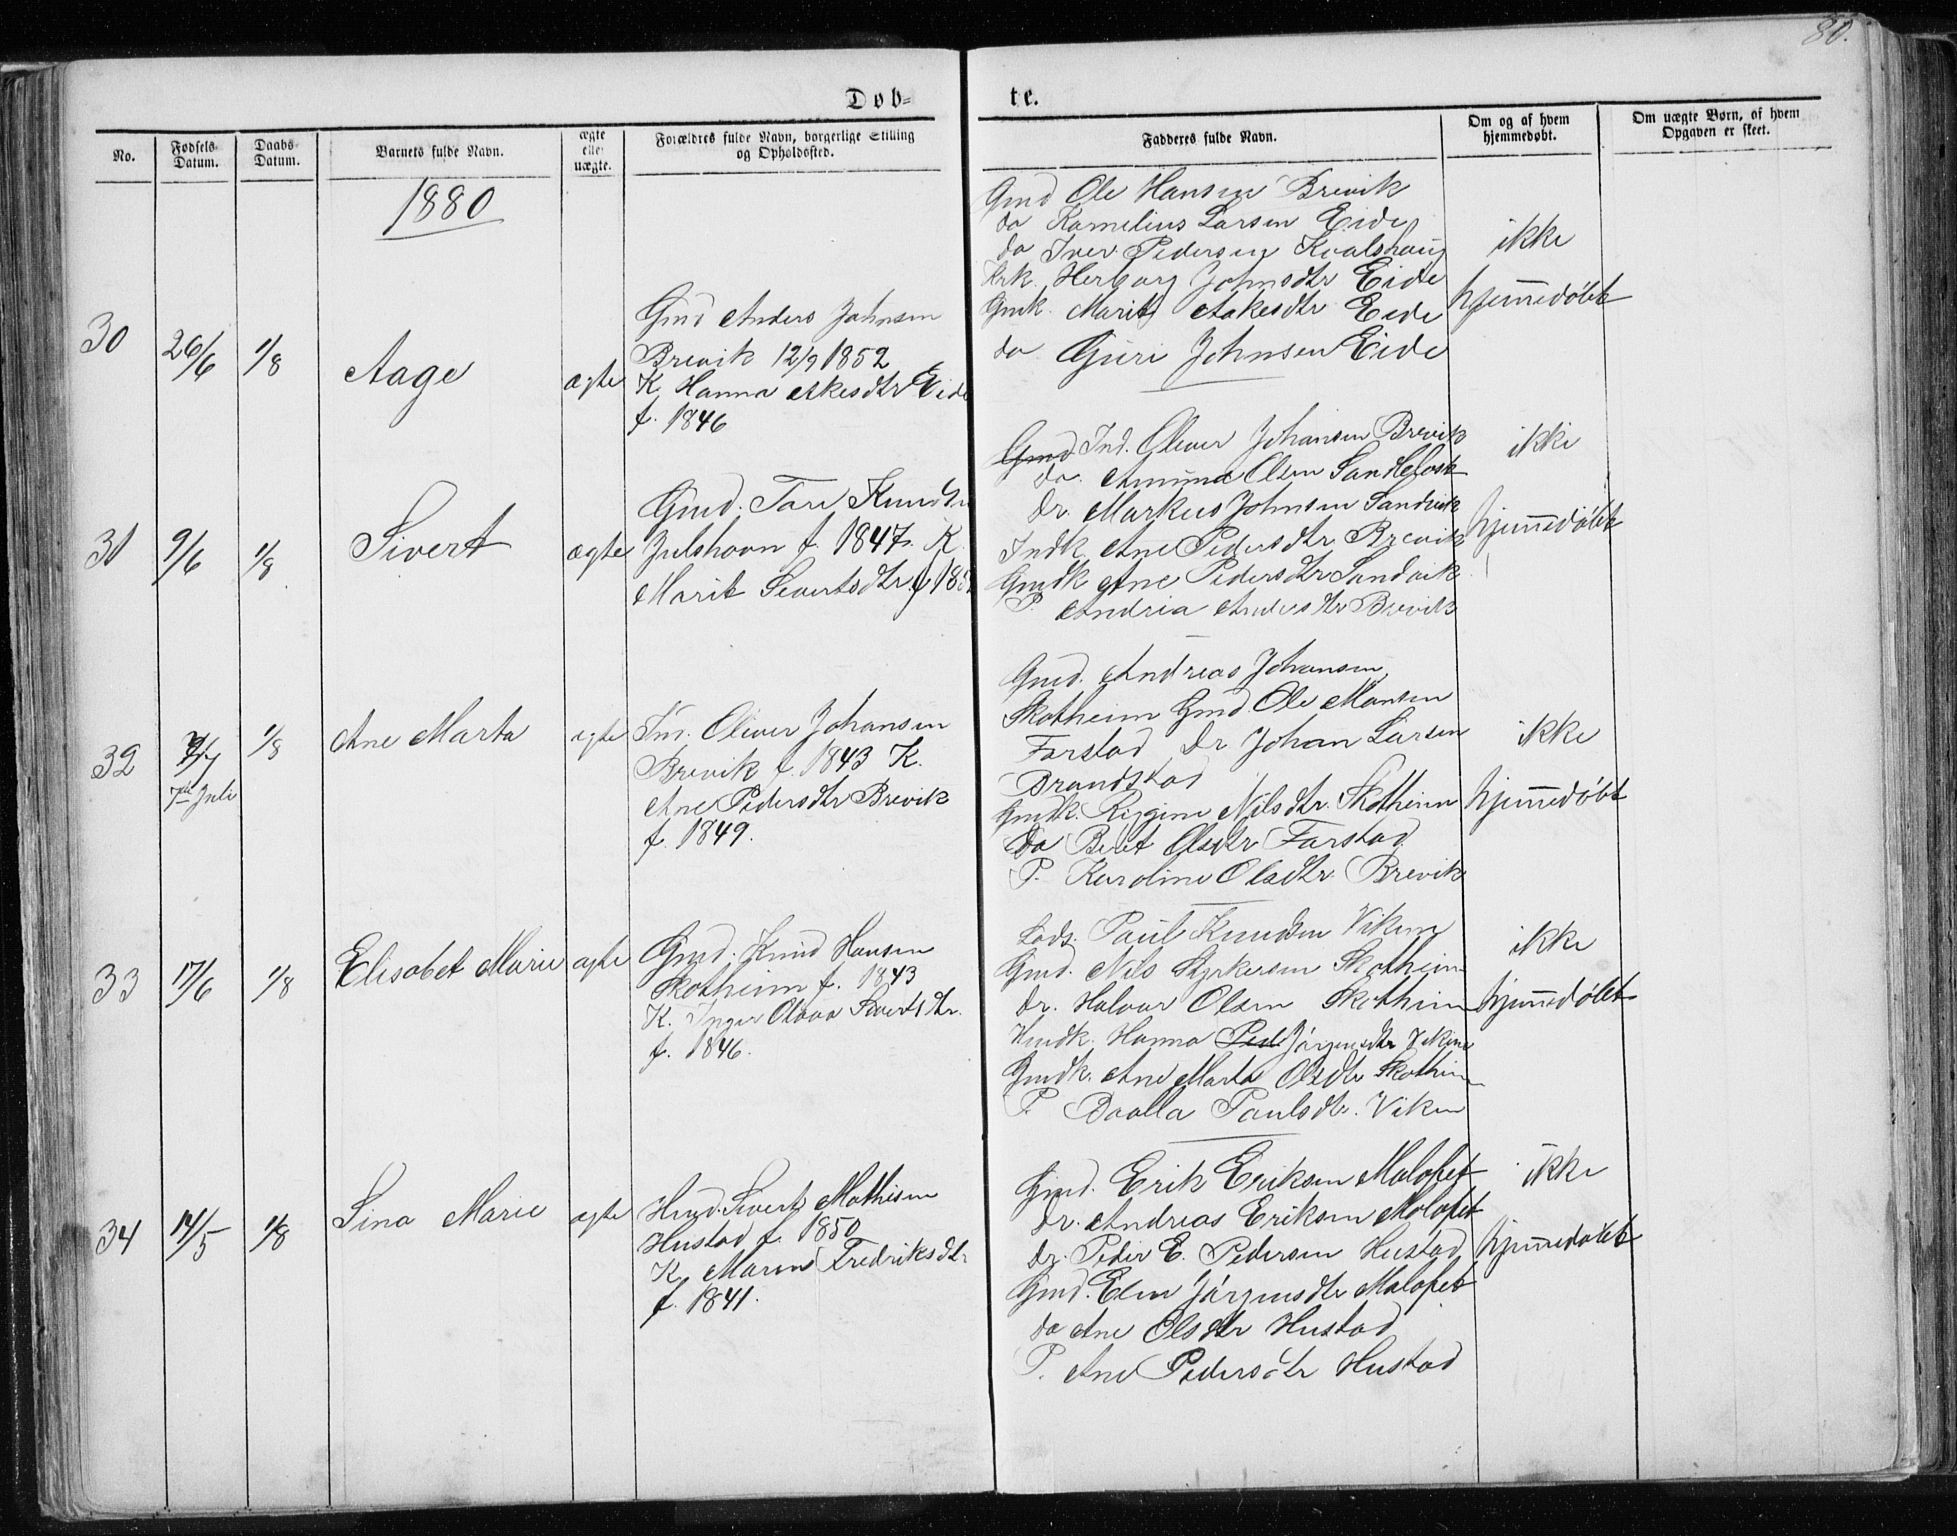 80.
Døb=
te.
No.
Fødsels-
Datum.
Daabs-
Datum.
Barnets fulde Navn.
ægte
eller
uægte.
Forældres fulde Navn, borgerlige Stilling
og Opholdssted.
Fadderes fulde Navn.
Om og af hvem
hjemmedøbt.
Om uægte Børn, af hvem
Opgaven er skeet.
1880
30
26/6
1/8
Aage
ægte
Gmd Anders Johnsen
Brevik 12/9 1852
K. Hanna Akesdtr Eide
f. 1846
Gmd Ole Hansen Brevik
do Kornelius Larsen Eide
do Iver Pedersen Kvalshaug
Herborg Johnsdtr Eide
Gmk. Marit Aakesdtr Eide
do Guri Johnsen Eide
ikke
hjemmedøbt
31
9/6
1/8
Sivert
ægte
Gmd. Tore Knudsen
Julshavn f. 1847. K.
Marit Sivertsdtr f 185
Gmd Ind. Oliver Johansen Brevik
do. Olsen
Dr. Markus Johnsen Sandvik
Indk Ane Pedersdtr Brevik
Gmdk Ane Pedersdtr Sandvik
P. Andria Andersdtr Brevik
ikke
hjemmedøbt
32
7/7
7de Juli
1/8
Ane Marta
ægte
Ind. Oliver Johansen
Brevik f. 1843 K.
Ane Pedersdtr Brevik
f. 1849.
Gmd. Andreas Johansen
Skotheim Gmd. Ole Monsen
Farstad Dr Johan Larsen
Brandstad
Gmdk. Reggine Nilsdtr. Skotheim
Do Berit Olsdtr Farstad
P. Karoline Olsdtr Brevik
ikke
hjemmedøbt
33
17/6
1/8
Elisabet Marie
ægte
Gmd. Knud Hansen
Skotheim f. 1843
K. Inger Olava Sivertsdtr.
f. 1846.
Lods. Paul Knudsen Viken
Gmd. Nils Styrkersen Skotheim
Dr. Halvor Olsen Skotheim
Hmdk. Hanna Ped Jörgensdtr Viken
Gmdk. Ane Marta Olsdtr Skotheim
P. Paulsdtr. Viken
ikke
hjemmedøbt
34
14/5
1/8
Sina Marie
ægte
Hmd. Sivert Mathisen
Hustad f. 1850
K. Maren Fredriksdtr
f. 1841.
Gmd. Erik Eriksen Malefet
Dr. Andreas Eriksen Malefet
Dr. Peder E. Pedersen Hustad
Gmd. Elen Jörgensdtr Malefet
do Ane Olsdtr Hustad
P. Ane Pedersdtr Hustad
ikke
hjemmedøbt